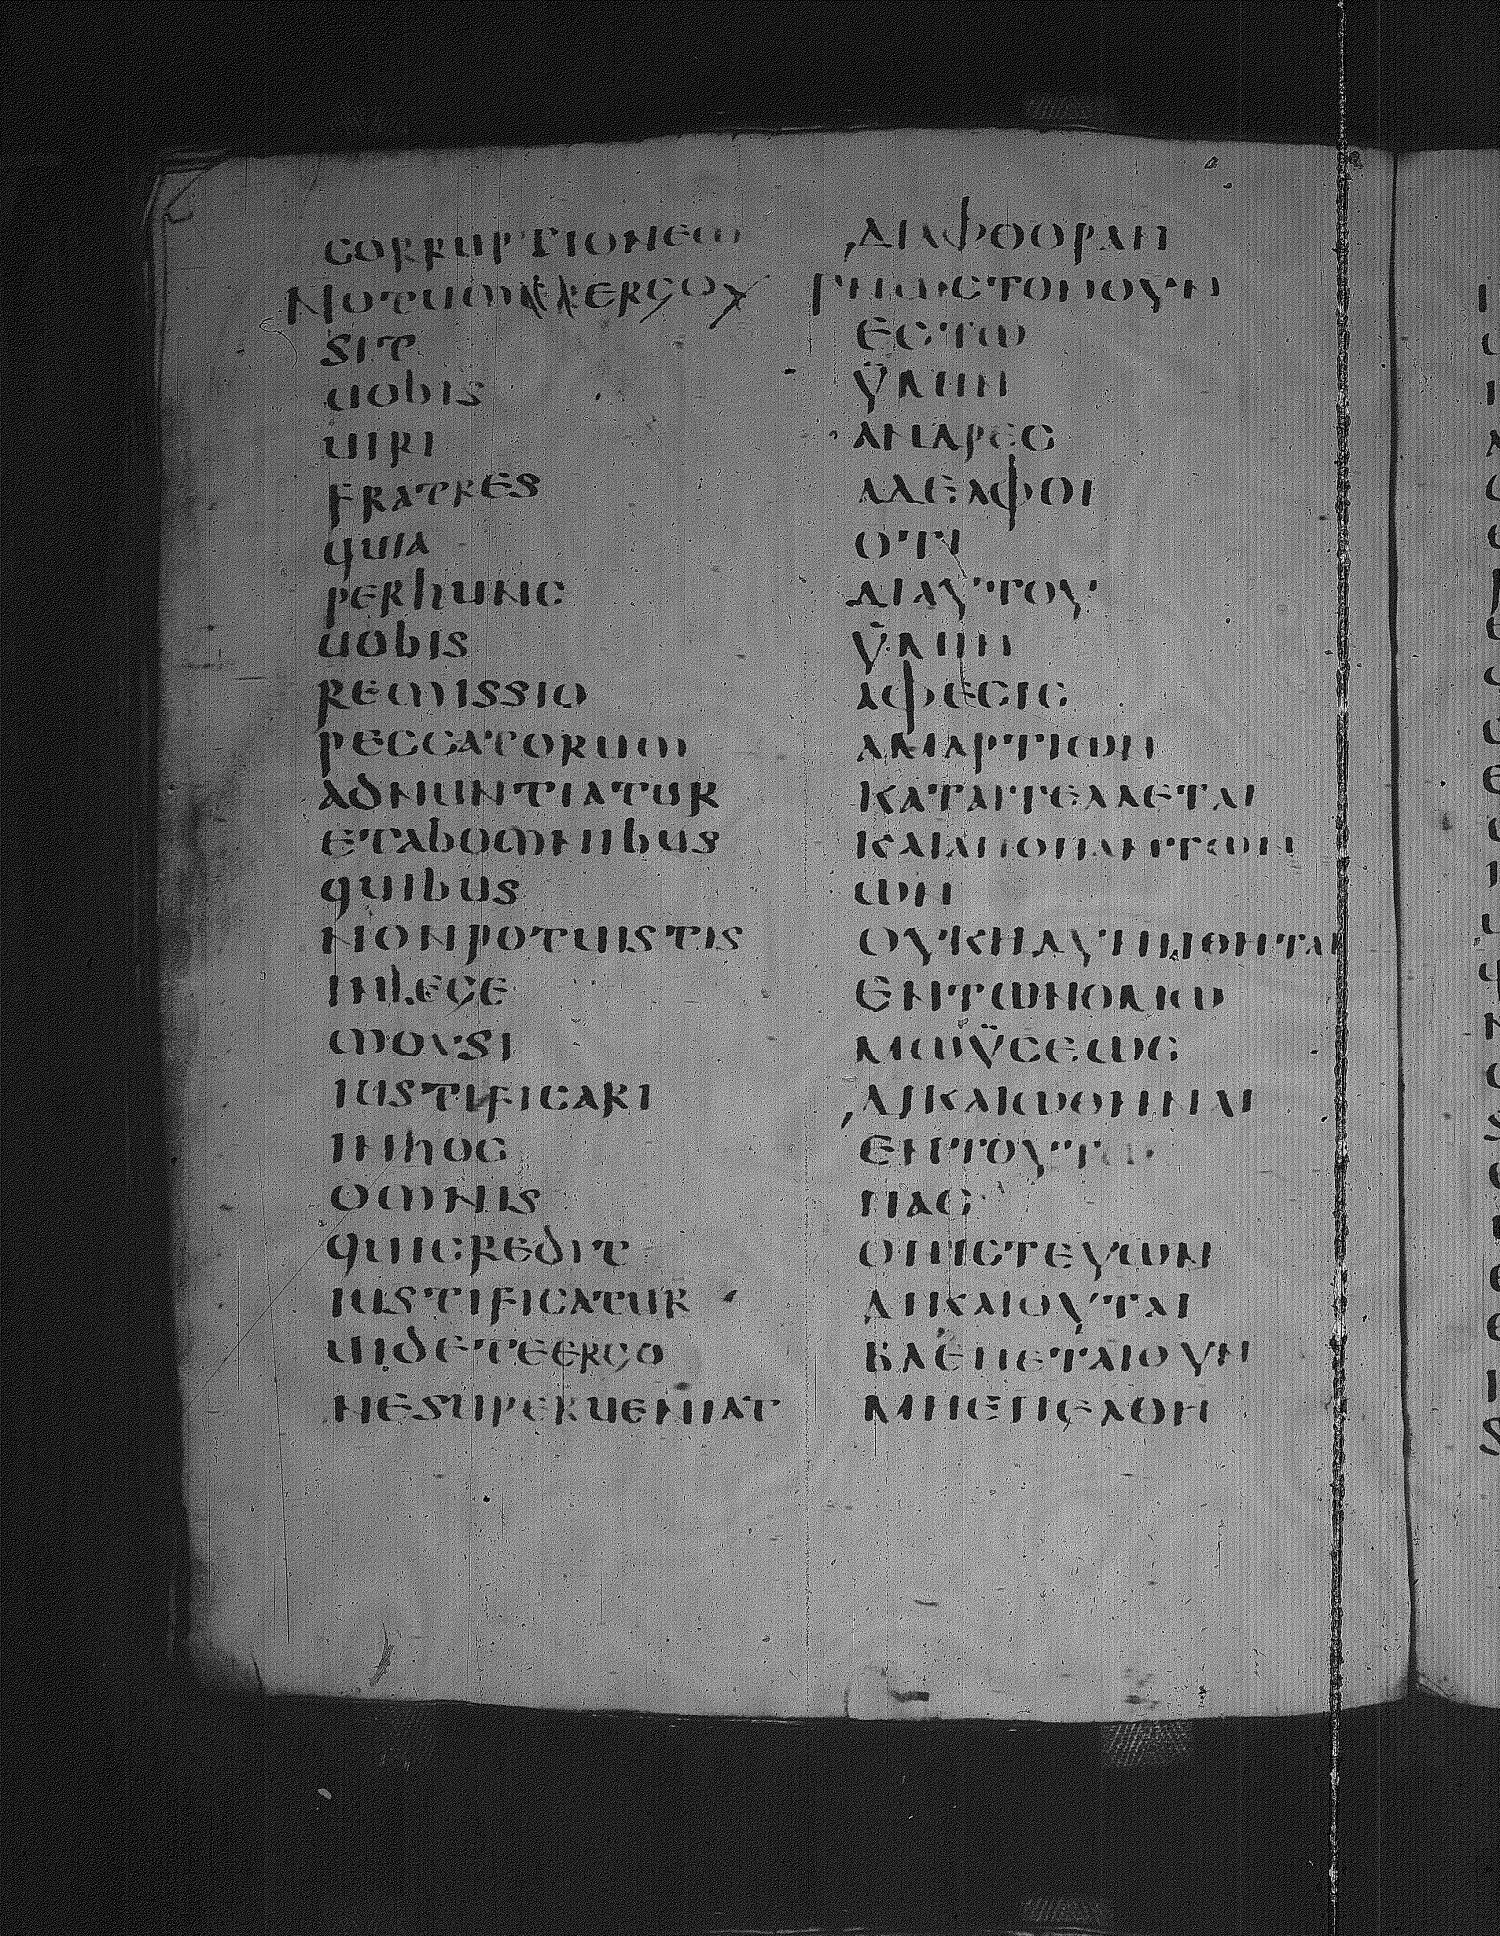 corruptionem
Notum ergo
sit
uobis
uiri
fratres
quia
perhunc
uobis
remissio
peccatorum
adnuntiatur
etabomnibus
quibus
nonpotuistis
inlege
moysi
iustificari
inhoc
omnis
quicredit
iustificatur
uideteergo
nesuperueniat
ΔΙΑΦΘΟΡΑΝ
ΓΝΩΣΤΟΝΟΥΝ
ΕϹΤΩ
ΫΜΙΝ
ΑΝΔΡΕϹ
ΑΔΕΛΦΟΙ
ΟΤΙ
ΔΙΑΥΤΟΥ
ΫΜΙΝ
ΑΦΕϹΙϹ
ΑΜΑΡΤΙΩΝ
ΚΑΤΑΓΓΕΛΛΕΤΑΙ
ΚΑΙΑΠΟΠΑΝΤΩΝ
ΩΝ
ΟΥΚΗΔΥΝΗΘΗΤΑΙ
ΕΝΤΩΝΟΜΩ
ΜΩΫϹΕΩϹ
ΔΙΚΑΙΩΘΗΝΑΙ
ΕΝΤΟΥΤΩ
ΠΑϹ
ΟΠΙϹΤΕΥΩΝ
ΔΙΚΑΙΟΥΤΑΙ
ΒΛΕΠΕΤΑΙΟΥΝ
ΜΗΕΠΕΛΘΗ